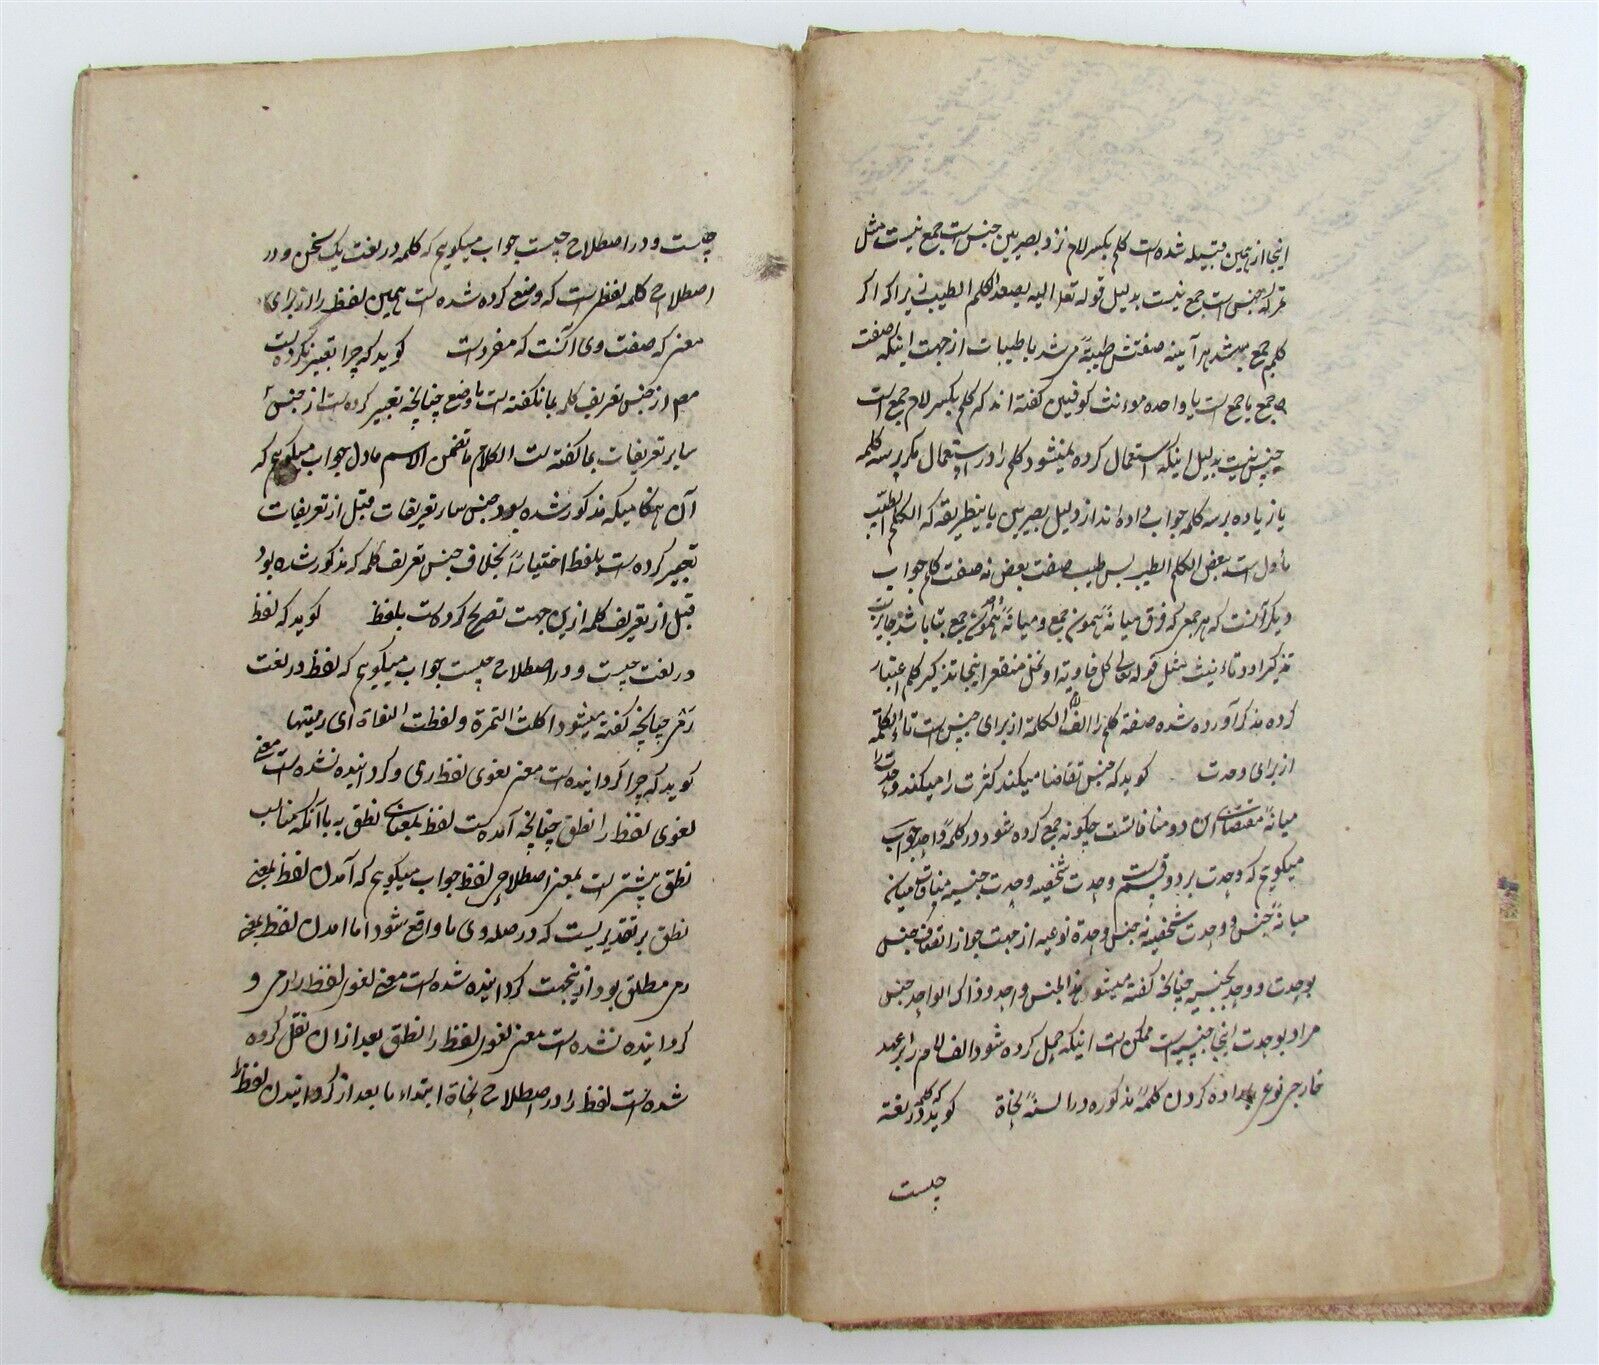 اینجا از همین قبیله شده است کلم بکسر لام نزد بصریین جنس است جمع نیست مثل
تمر که جنس است جمع نیست بدلیل قوله تعالی الیه یصعد الکلم الطیب زیرا که اگر
کلم جمع میشد هر آیینه صفتش طیبة می شد یا طیبات از جهت اینکه صفت
جمع یا جمع است یا واحده موءنث کوفیین کفته اند که کلم بکسر لام جمع است
جنس نیست بدلیل اینکه استعمال کرده نمیشود کلم را در استعمال مکر بر سه کلمه
یا زیاده بر سه کلمه جواب داده اند از دلیل بصریین باینطریقه که الکلم الطیب
مأول است ببعض الکلم الطیب پس طیب صفت بعض نه صفت کلم جواب
دیکر آنست که هر جمعی که فرق میانهٔ همون جمع و میانهٔ واحد همون جمع بتا باشد جایز است
تذکیر او و تاءنیث مثل قوله تعالی کل خاویه او نخل منقعر اینجا تذکیر کلم اعتبار
کرده مذکر آورده شده صفته کلم را الف لام الکلمة از برای جنس است تاء الکلمة
از برای وحدت کوید که جنس تقاضا میکند کثرت را میکند وحدت را
میانهٔ مقتضای آن دو منافاتست چکونه جمع کرده شود در کلمهٔ واحد جواب
میکویم که وحدت بر دو قسم است وحدت شخصیه وحدت جنسیه منافات میان
میانهٔ جنس و وحدت شخصیه نه جنس وحدة نوعیه از جهت جواز اتصاف جنس
بوحدت و وحد بجنسیه چنانکه کفته میشود هذا الجنس واحد و ذاک الواحد جنس
مراد بوحدت اینجا جنسیه است ممکن است اینکه حمل کرده شود الف لام را بر عهد
خارجی نوعی باراده کردن کلمهٔ مذکوره در السنهٔ نحاة کوید که کلمه در لغة
چیست
چیست و در اصطلاح چیست جواب میکویم که کلمه در لغت یک سخن و در
اصطلاح کلمه لفظی است که وضع کرده شده است همین لفظ را از برای
معنی که صفت وی آنست که مفرد است کوید که چرا تعبیر نکرده است
مص از جنس تعریف کلمه بما نکفته است ما وضع چنانچه تعبیر کرده است از جنس
سایر تعریفات بما کفته است الکلام ما تضمن الاسم ما دل جواب میکویم که
آن هنکامیکه مذکور شده بود جنس سایر تعریفات قبل از تعریفات
تعبیر کرده است بلفظ ما اختیاراً بخلاف جنس تعریف کلمه که مذکور شده بود
قبل از تعریف کلمه ازین جهت تصریح کرده است بلفظ کوید که لفظ
در لغت چیست و در اصطلاح چیست جواب میکویم که لفظ در لغت
رمی چنانچه کفته میشود اکلت التمرة و لفظت النواة ای رمیتها
کوید که چرا کردانیده است معنی لغوی لفظ رمی و کردانیده نشده است معنی
لغوی لفظ را نطق چنانچه آمده است لفظ بمعنای نطق به با آنکه مناسب
نطق پیشتر است بمعنی اصطلاحی لفظ جواب میکویم که آمدن لفظ بمعنی
نطق بر تقدیریست که در صله وی ما واقع شود اما آمدن لفظ بمعنی
رمی مطلق بود ازینجهت کردانیده شده است معنی لغوی لفظ را رمی و
کردانیده نشده است معنی لغوی لفظ را نطق بعد از آن نقل کرده
شده است لفظ را در اصطلاح نحاة ابتداء یا بعد از کردانیدن لفظ را